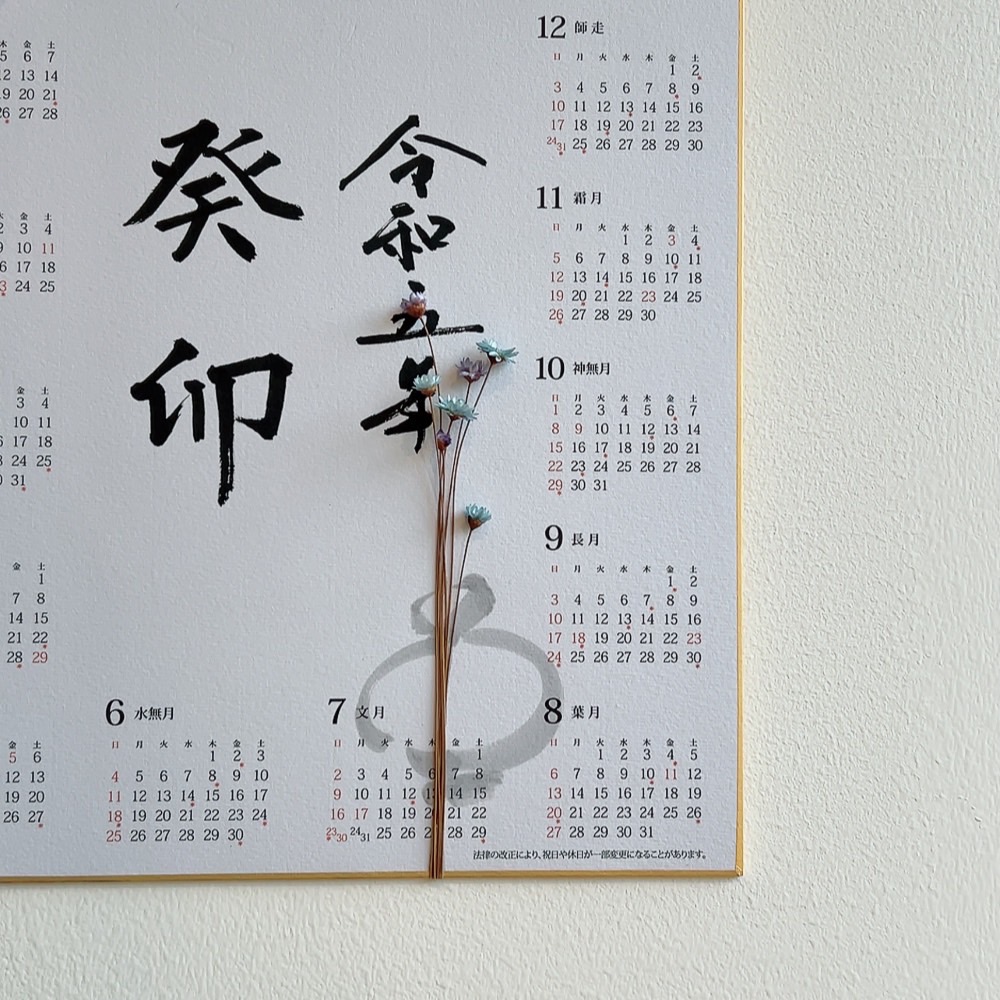 令和五年
癸卯
12 師走
日 月 火 水 木 金 土
1 2
3 4 5 6 7 8 9
10 11 12 13 14 15 16
17 18 19 20 21 22 23
24 31 25 26 27 28 29 30
11 霜月
日 月 火 水 木 金 土
1 2 3 4
5 6 7 8 9 10 11
12 13 14 15 16 17 18
19 20 21 22 23 24 25
26 27 28 29 30
10 神無月
日 月 火 水 木 金 土
1 2 3 4 5 6 7
8 9 10 11 12 13 14
15 16 17 18 19 20 21
22 23 24 25 26 27 28
29 30 31
9 長月
日 月 火 水 木 金 土
1 2
3 4 5 6 7 8 9
10 11 12 13 14 15 16
17 18 19 20 21 22 23
24 25 26 27 28 29 30
8 葉月
日 月 火 水 木 金 土
1 2 3 4 5
6 7 8 9 10 11 12
13 14 15 16 17 18 19
20 21 22 23 24 25 26
27 28 29 30 31
7 文月
日 月 火 水 木 金 土
1
2 3 4 5 6 7 8
9 10 11 12 14 15
16 17 18 19 21 22
23 30 24 31 25 26 28 29
6 水無月
日 月 火 水 木 金 土
1 2 3
4 5 6 7 8 9 10
11 12 13 14 15 16 17
18 19 20 21 22 23 24
25 26 27 28 29 30
金 土
5 6
12 13
19 20
26 27
金 土
1
7 8
14 15
21 22
28 29
金 土
3 4
10 11
17 18
24 25
31
金 土
3 4
10 11
17 18
24 25
木 金 土
5 6 7
12 13 14
19 20 21
26 27 28
法律の改正により、祝日や休日が一部変更になることがあります。